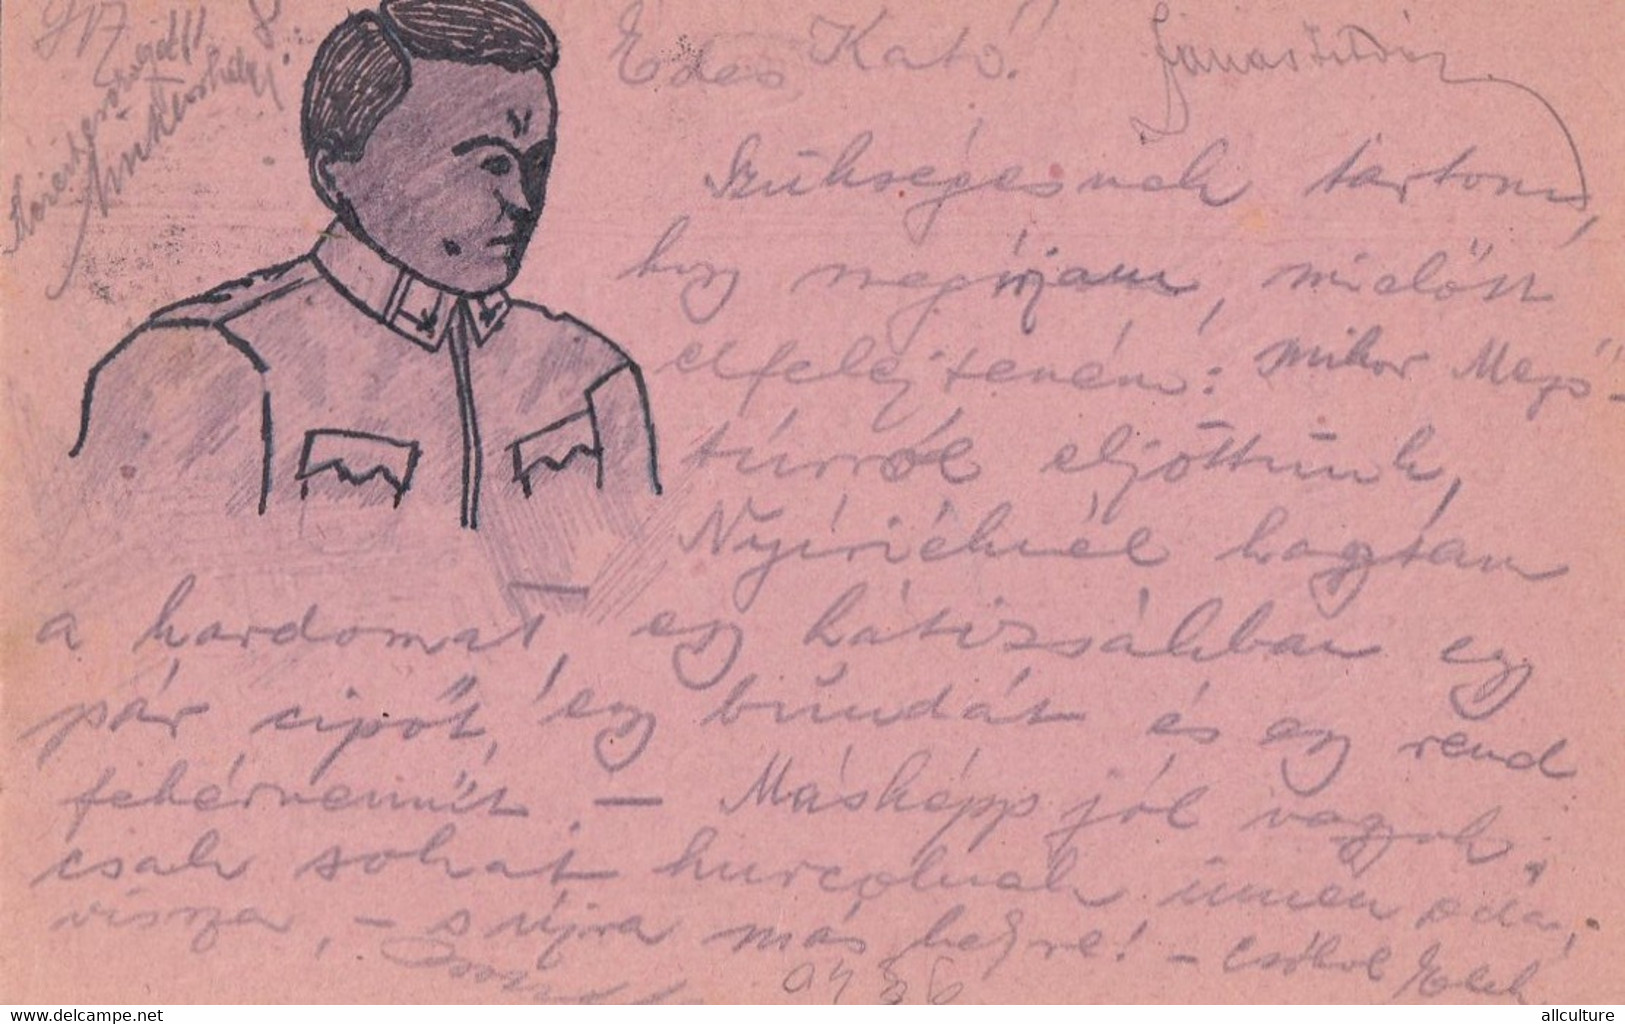 917
Édes Kató!
Szükségesnek tartom,
hogy megírjam, mielőtt
elfelejteném: mikor Mező-
túrról eljöttünk,
Nyíriéknél hagytam
a kardomat, egy hátizsákban egy
pár cipőt, egy bundát és egy rend
fehérneműt. – Másképp jól vagyok,
csak sokat hurcolnak innen oda,
vissza, – s újra más helyre! – Csókol Elek
www.delcampe.net
allculture